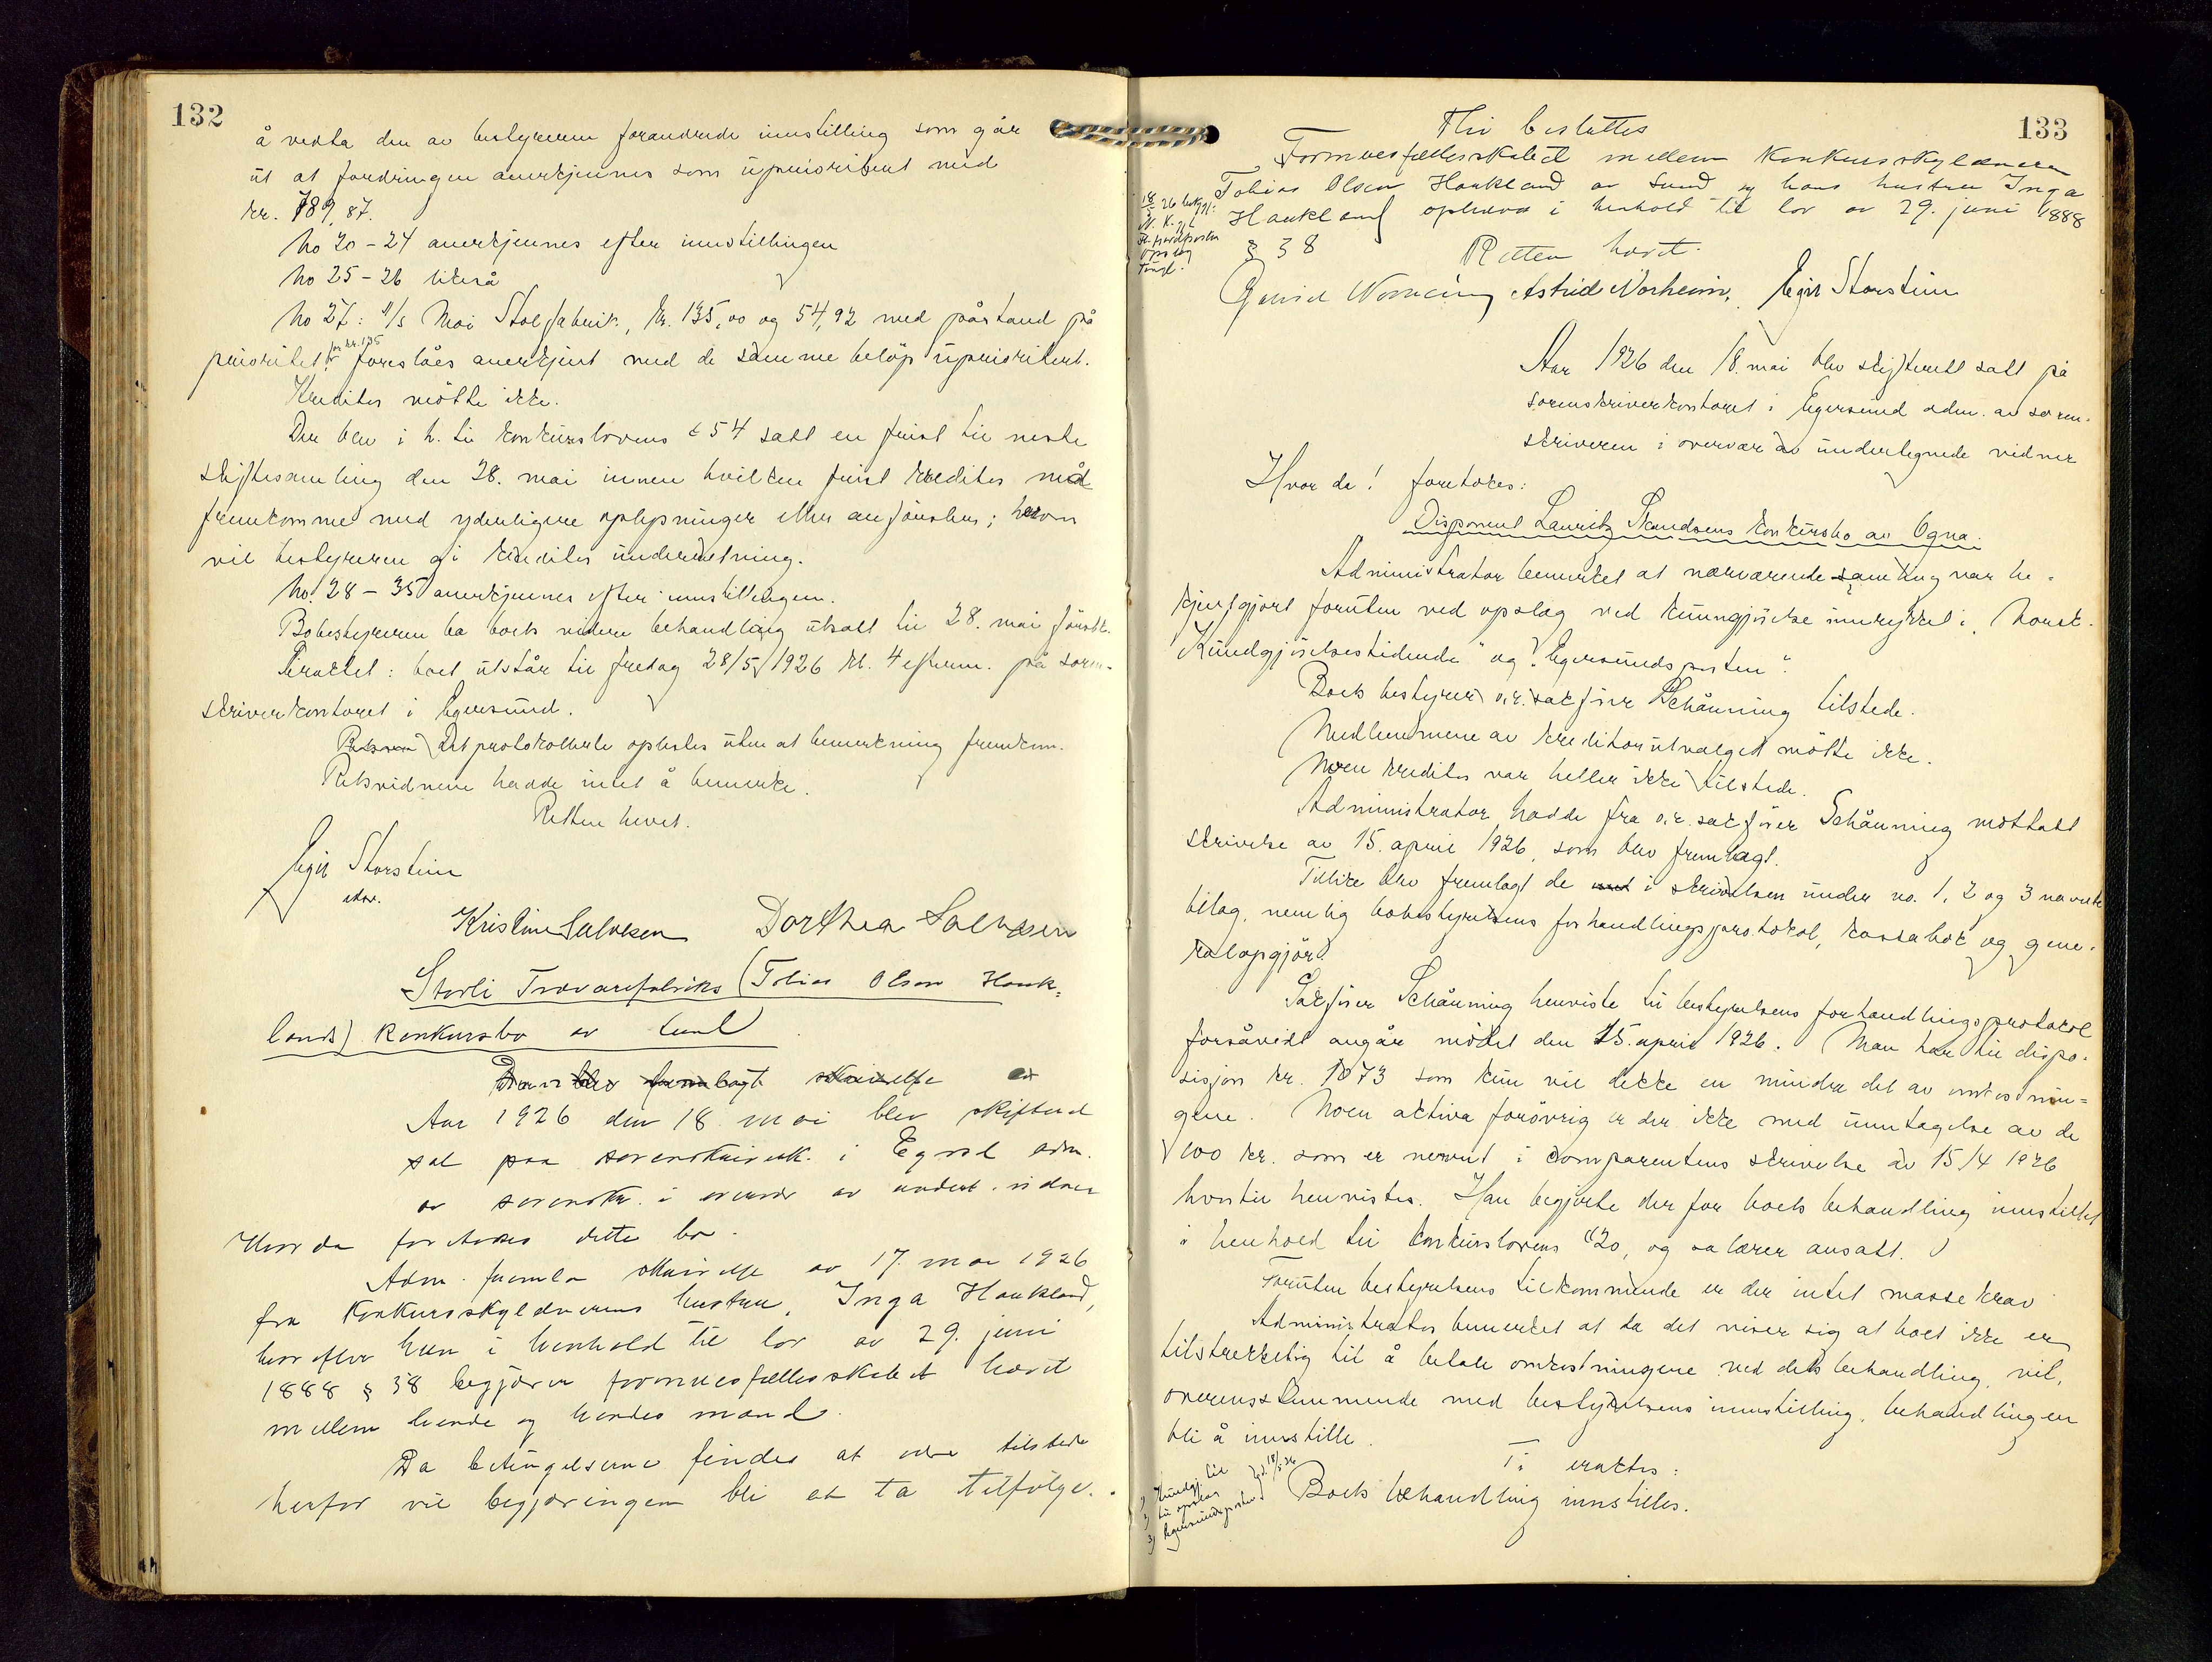 132
å vedta den av bestyreren forandrede innstilling som går
ut at fordringen anerkjennes som uprioritert med
kr. 789,87.
No 20 - 24 anerkjennes efter innstillingen
No 25 - 26 likeså
No 27: A/S Moi Stolfabrik, kr. 135,00 og 54,92 med påstand på
prioritet for kr. 135 foreslåes anerkjent med de samme beløp uprioritert.
Kreditor møtte ikke.
Der blev i h. til konkurslovens § 54 satt en frist til neste
skiftesamling den 28. mai innen hvilken frist kreditor må
fremkomme med yderligere oplysninger eller anførsler; herom
vil bestyreren gi kreditor underretning.
No. 28 - 35 anerkjennes efter innstillingen.
Bobestyreren ba boets videre behandling utsatt til 28. mai førstk.
Eraktet: boet utstår til fredag 28/5 1926 kl. 4 efterm. på soren-
skriverkontoret i Egersund.
Det protokollerte oplestes uten at bemerkning fremkom.
Retsvidnene hadde intet å bemerke.
Retten hevet.
Egil Storstein
Kristine Salvesen Dorthea Salvesen
Storli Trævarefabriks (Tobias Olsen Hauk-
lands) konkursbo av Lund
Der blev fremlagt skrivelse av
Aar 1926 den 18 mai blev skifteret
sat paa sorenskriverk. i Egersd adm.
av sorenskr. i overvær av undert. vidner
Hvor da foretokes dette bo.
Adm. fremla skrivelse av 17. mai 1926
fra konkursskyldnerens hustru, Inga Haukland,
hvorefter hun i henhold til lov av 29. juni
1888 § 38 begjærer formuesfællesskabet hævet
mellem hende og hendes mand.
Da betingelserne findes at være tilstede
herfor vil begjæringen bli at ta tilfølge.
133
Thi besluttes
Formuesfællesskabet mellem konkursskyldneren
Tobias Olsen Haukland av Lund og hans hustru Inga
Haukland ophæves i henhold til lov av 29. juni 1888
§ 38
Retten hævet.
18/5 26 bekjgj:
N. K. g. t.
opslag
tingl.
Astrid Norheim, Egil Storstein
Aar 1926 den 18. mai blev skifterett satt på
sorenskriverkontoret i Egersund adm. av soren-
skriveren i overvær av undertegnede vidner
Hvor da! foretokes:
Disponent Lauritz Skandsens konkursbo av Ogna.
Administrator bemerket at nærværende samling var be-
kjentgjort foruten ved opslag ved kunngjørelse innrykket i "Norsk
Kundgjørelsestidende" og "Egersundsposten".
Boets bestyrer o.r.sakfører Schånning tilstede.
Medlemmene av kreditorutvalget møtte ikke.
Noen kreditor var heller ikke tilstede.
Administrator hadde fra o.r.sakfører Schånning mottatt
skrivelse av 15. april 1926, som blev fremlagt.
Tillike blev fremlagt de i skrivelsen under no. 1, 2 og 3 nævnte
bilag, nemlig bobestyrelsens forhandlingsprotokol, kassabok og gene-
ralopgjør.
Sakfører Schånning henviste til bestyrelsens forhandlingsprotokol
forsåvidt angår møtet den 15. april 1926. Man har til dispo-
sisjon kr. 1073 som kun vil dekke en mindre del av omkostnin-
gene. Noen aktiva forøvrig er der ikke med unntagelse av de
100 kr. som er nevnt i comparentens skrivelse av 15/4 1926
hvortil henvistes. Han begjærte derfor boets behandling innstillet
i henhold til konkurslovens § 20, og salærer ansatt.
Foruten bestyrelsens tilkommende er der intet massekrav
Administrator bemerket at da det viser sig at boet ikke er
tilstrekkelig til å betale omkostningene ved dets behandling, vil,
overensstemmende med bestyrelsens innstilling, behandlingen
bli å innstille.
Ti eraktes:
Boets behandling innstilles.
1) Kundgj. tid
2) til opslag
3) Egersundsposten